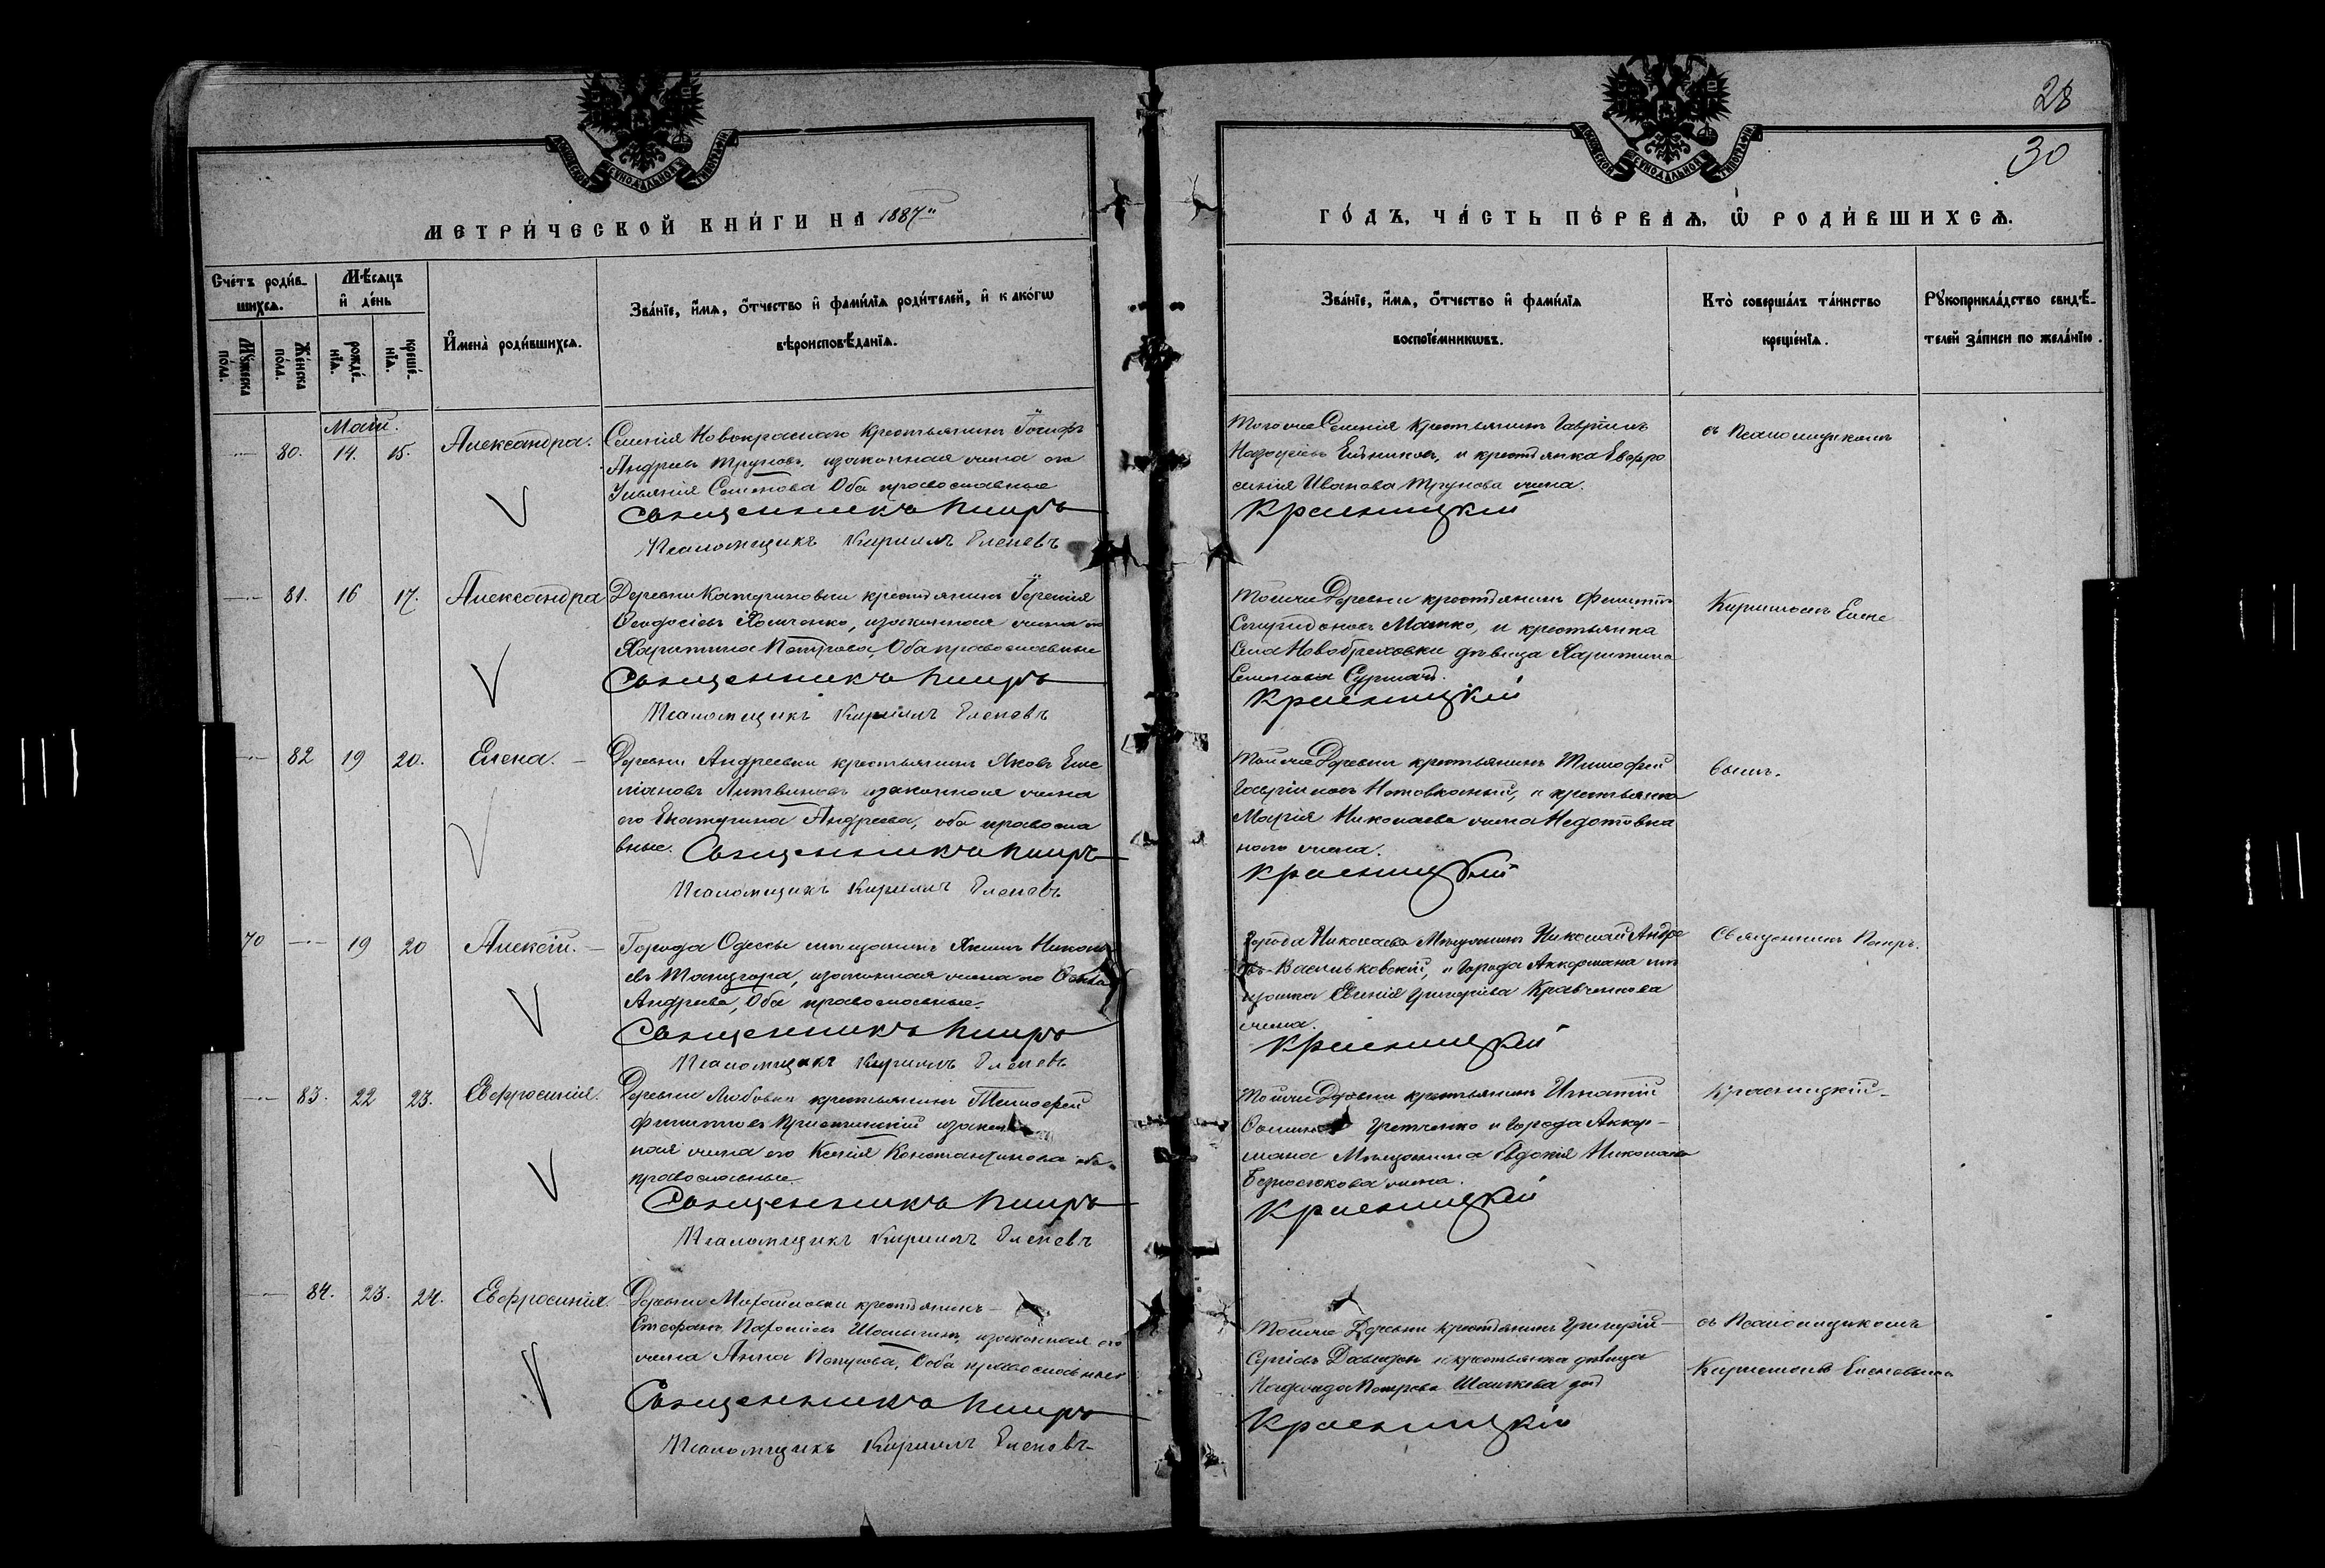 28
30
МЕТРИ́ЧЕСКОЙ КНИ́ГИ НА 1887й
ГО́ДЪ, ЧА́СТЬ ПЕ́РВАѦ, Ѿ РОДИ́ВШИХСѦ.
Сче́тъ роди́в-
шихсѧ.
Мѣ́сѧцъ
и҆ де́нь
Мꙋ́жеска по́ла.
Же́нска по́ла.
рожде́-
нїѧ.
креще́-
нїѧ.
И҆мена̀ роди́вшихсѧ.
Зва́нїе, и҆́мѧ, ѻ҆́тчество и҆ фами́лїѧ роди́телей, и҆ како́гѡ
вѣроисповѣ́данїѧ.
Зва́нїе, и҆́мѧ, ѻ҆́тчество и҆ фами́лїѧ
воспрїе́мникѡвъ.
Кто̀ соверша́лъ та́инство
креще́нїѧ.
Рꙋкоприкла́дство свидѣ́-
телей за́писи по жела́нїю.
Май.
80. 14. 15. Александра.
Селенія Новокраснаго крестьянинъ Іосифъ
Андреевъ Труновъ, и законная жена его
Ульянія Семенова Оба православные
Священникъ Петръ
Псаломщикъ Кириллъ Еленевъ
Того же Селенія крестьянинъ Гавріилъ
и крестьянка Евфро
синія Иванова Трунова жена.
Красницкій
съ Псаломщикомъ
81. 16 17. Александра
Деревни Катериновки крестьянинъ Іеремія
Феодосіевъ Хомченко, и законная жена его
Харитина Петрова, Оба православные
Священникъ Петръ
Псаломщикъ Кириллъ Еленевъ
Той же Деревни крестьянинъ Филиппъ
Спиридоновъ Матко, и крестьянка
Села девица Харитина
Семенова
Красницкій
Кирилломъ Елене
82 19 20. Елена.
Деревни Андреевки крестьянинъ Яковъ Еме
ліановъ Литвиновъ и законная жена
его Екатерина Андреева, оба правосла
вные. Священникъ Петръ
Псаломщикъ Кириллъ Еленевъ
Той же Деревни крестьянинъ Тимофей
Гавріиловъ и крестьянка
Марія Николаева жена
жена.
Красницкій
вымъ.
70 19 20 Алексій.
Города Одессы мещанинъ Акимъ Никола
евъ и законная жена его
Андреева, Оба православные.
Священникъ Петръ
Псаломщикъ Кириллъ Еленевъ
Города Николаева Мещанинъ Николай Андре
евъ Васильковскій, и Города Аккермана ме
щанка Евгенія Григорьева Кравченкова
жена.
Красницкій
Священникъ Петръ
83. 22 23. Евфросинія.
Деревни Любовки крестьянинъ Тимофей
Филипповъ и закон
ная жена его Ксенія Константинова оба
православные.
Священникъ Петръ
Псаломщикъ Кириллъ Еленевъ
Той же Деревни крестьянинъ Игнатій
и Города Аккер-
мана Мещанина Евдокія Николаева
жена.
Красницкій
Красницкій
84. 23. 24. Евфросинія.
Деревни Михайловки крестьянинъ
Стефанъ и законная его
жена Анна Петрова, Оба православные
Священникъ Петръ
Псаломщикъ Кириллъ Еленевъ
Той же Деревни крестьянинъ Григорій
Сергіевъ и крестьянка девица
Надежда Петрова
Красницкій
съ Псаломщикомъ
Кирилломъ Еленевымъ